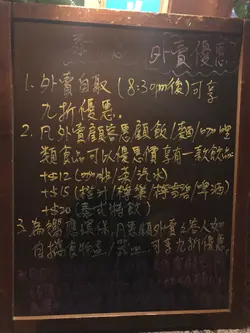 外賣優惠
1. 外賣自取 (8:30pm後)可享
九折優惠.
2. 凡外賣顧客惠顧飯/麵/
類食品可以優惠價享有一款飲品
+$12 (咖啡/茶/汽水)
+$15 (橙汁/檸樂/檸蜜/啤酒)
+$20 (泰式特飲)
3. 為響應環保,凡惠顧外賣之客人如
自攜食物盒/器皿,可享九折優惠.